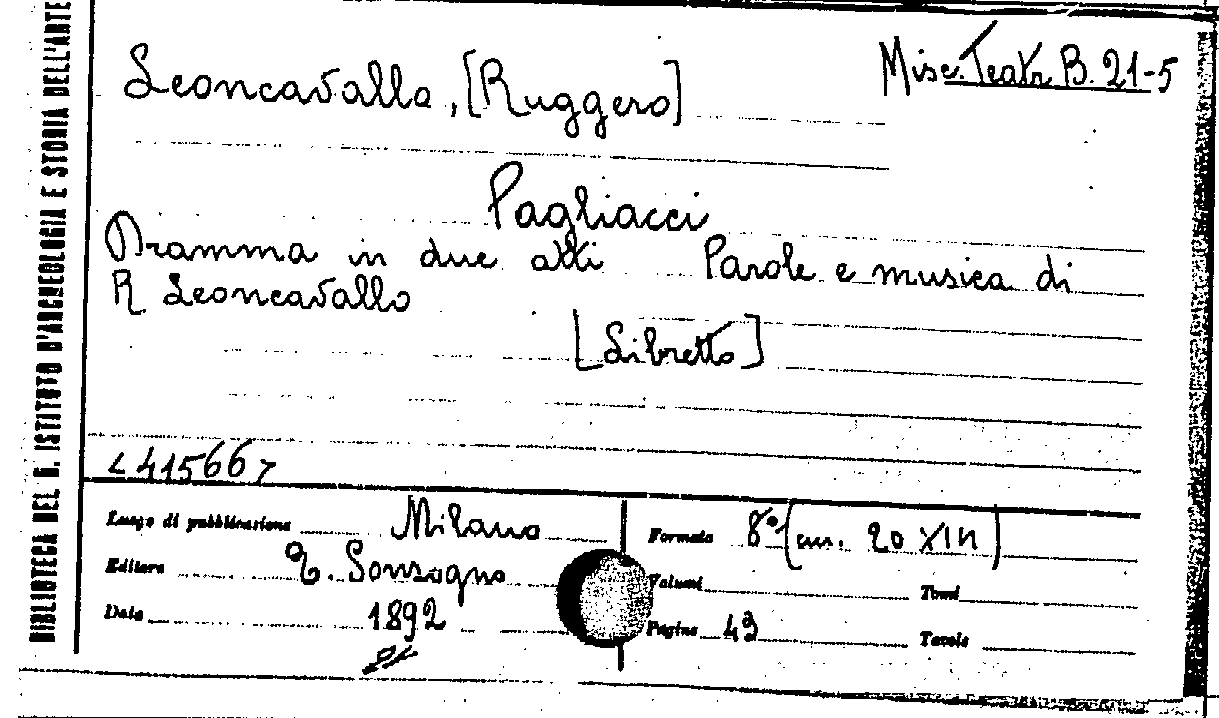 BIBLIOTECA DEL R. ISTITUTO D'ARCHEOLOGIA E STORIA DELL'ARTE
Leoncavallo, [Ruggero]
Misc. Teatr. B. 21-5
Pagliacci
Dramma in due atti Parole e musica di
R Leoncavallo
[Libretto]
<41566>
Luogo di pubblicazione Milano
Formato 8° (cm. 20 X 14)
Editore E. Sonzogno
Volumi Tomi
Data 1892
Pagine 49 Tavole